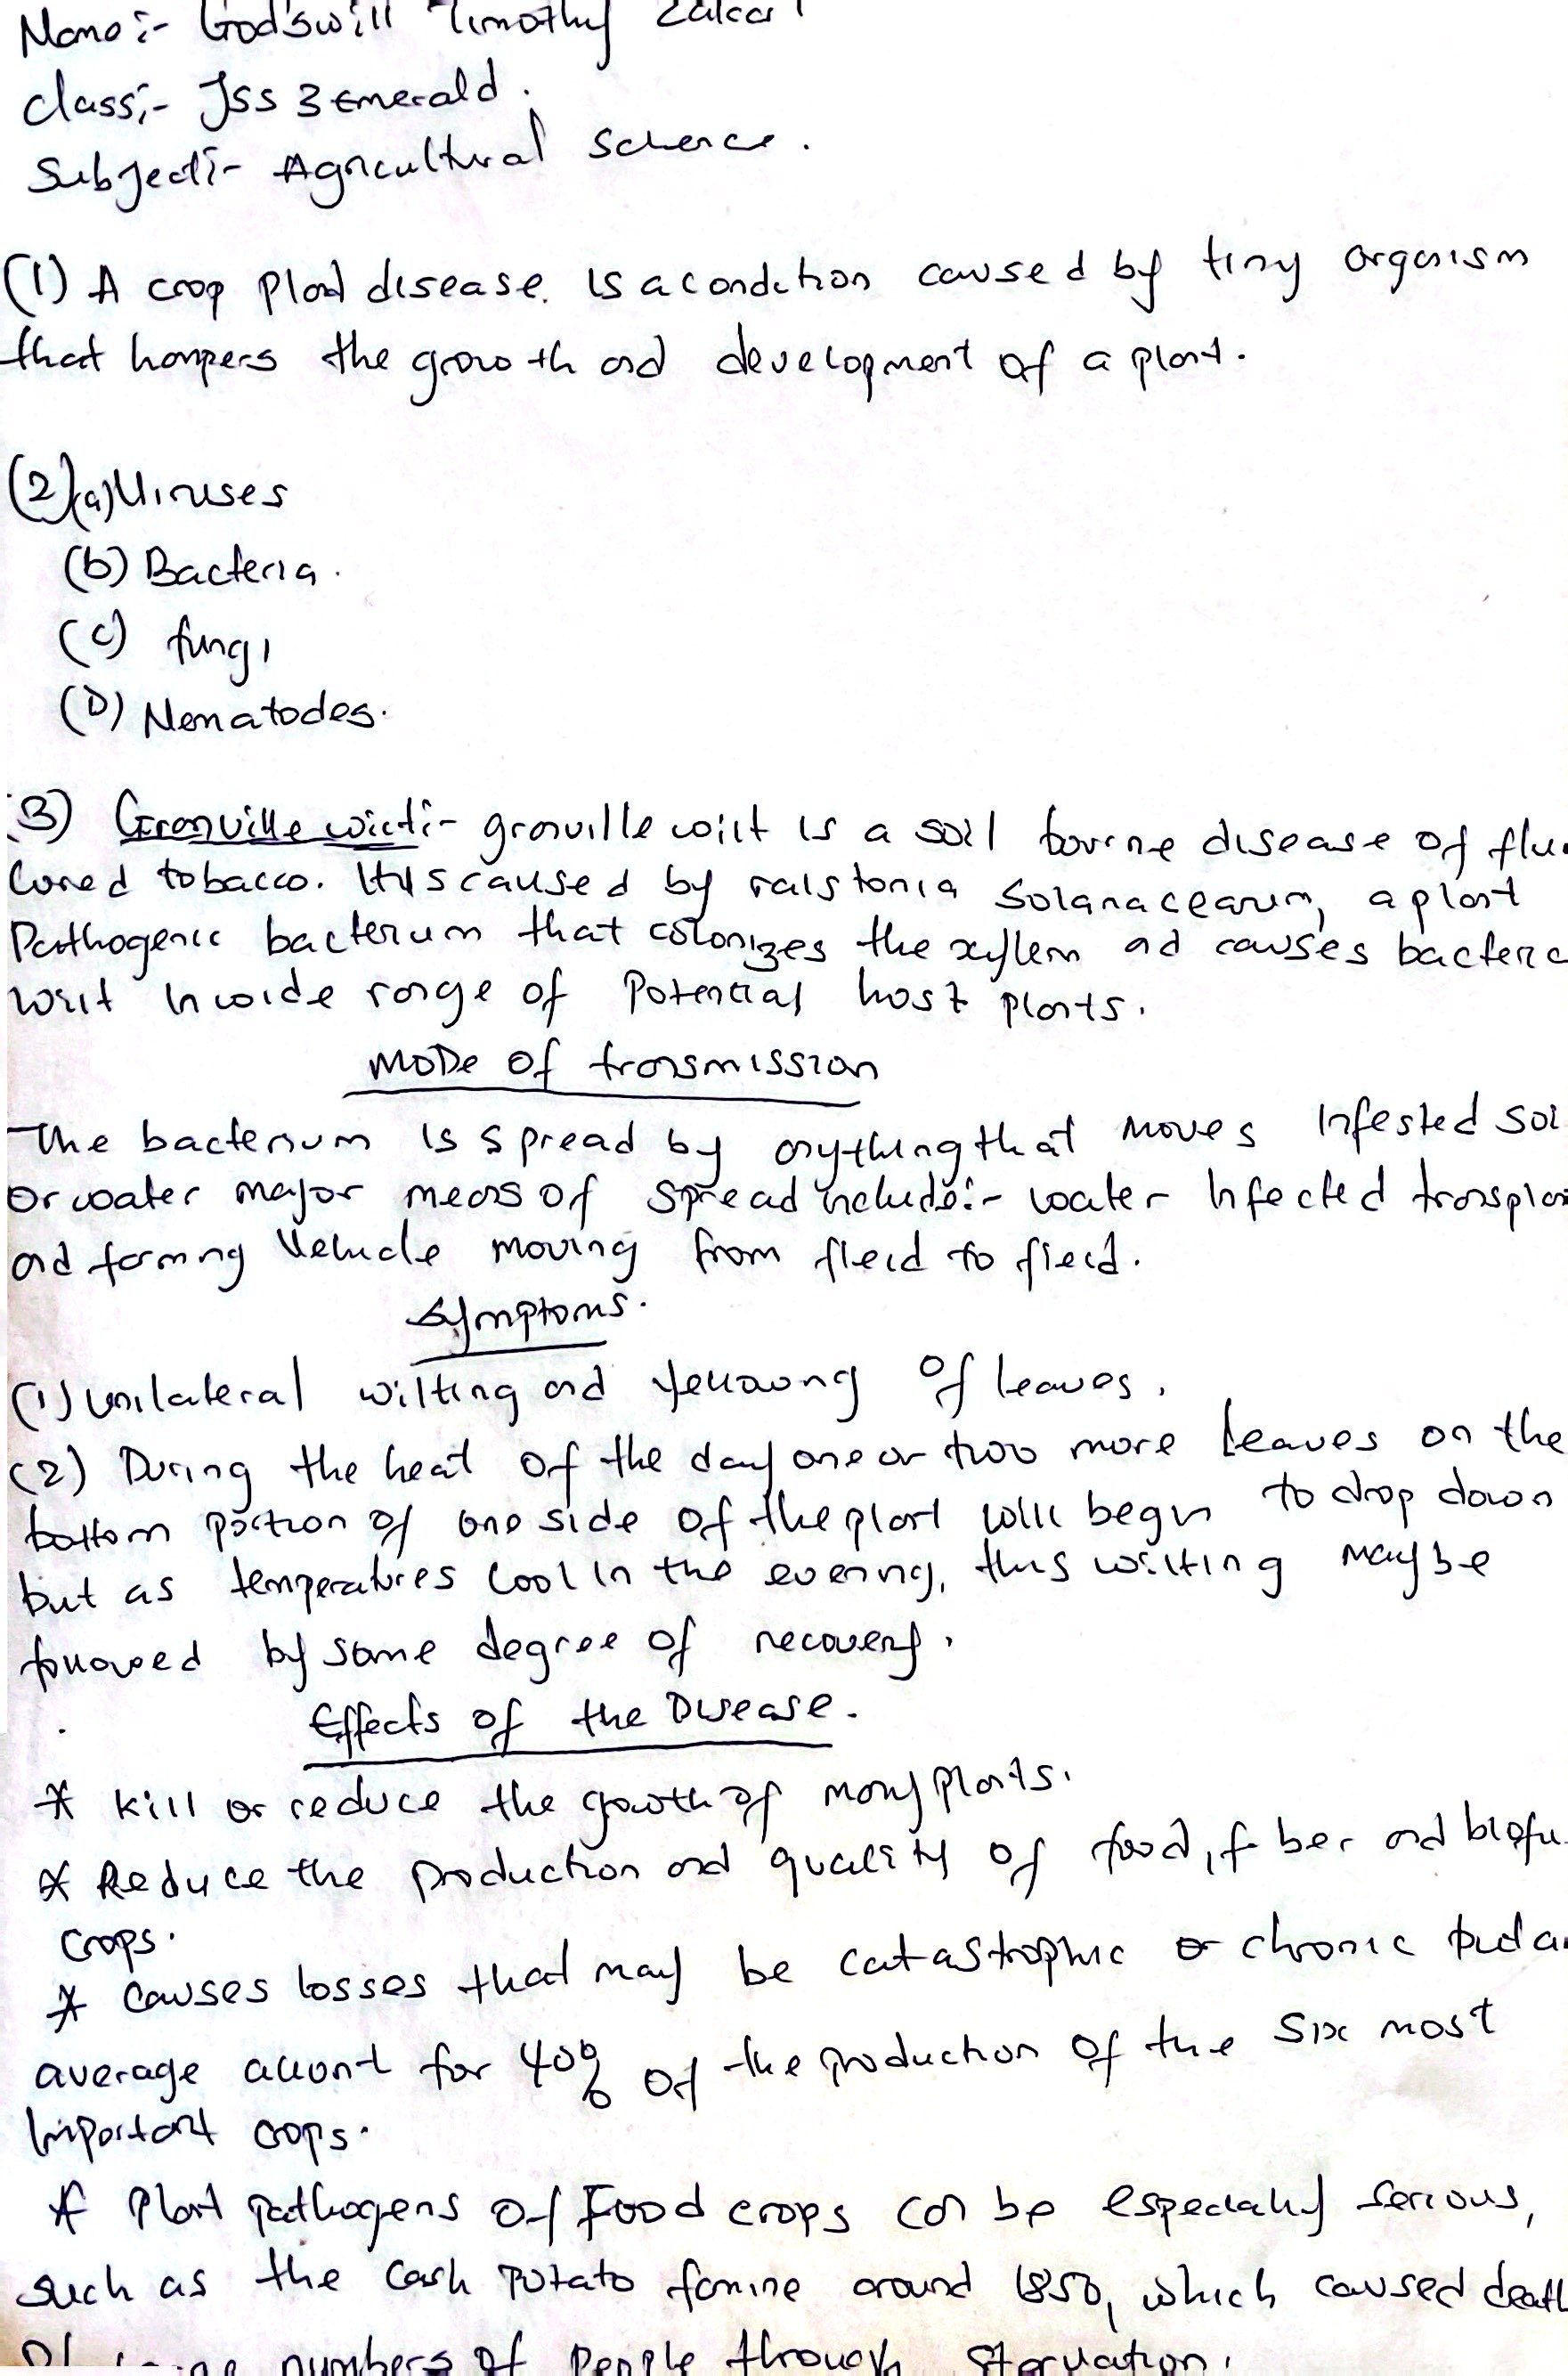 Name:- Godswill Timothy
Class:- Jss 3 Emerald.
Subject:- Agricultural Science.
(1) A crop plant disease. is a condition caused by tiny organism
that hampers the growth and development of a plant.
(2)(a) Viruses
(b) Bacteria.
(c) fungi
(D) Nematodes.
(3) Granville wilt:- granville wilt is a soil bourne disease of flue
Cured tobacco. It is caused by ralstonia Solanacearum, a plant
Pathogenic bacterium that colonizes the xylem and causes bacteria
wilt in wide range of Potential host plants.
Mode of transmission
The bacterium is spread by anything that moves infested soi
or water major means of spread include:- water infected transplan
and farming Vehicle moving from field to field.
Symptoms.
(1) Unilateral wilting and yellowing of leaves.
(2) During the heat of the day one or two more leaves on the
bottom portion of one side of the plant will begin to drop down
but as temperatures cool in the evening, this wilting may be
followed by some degree of recovery.
Effects of the Disease.
* Kill or reduce the growth of many plants.
* Reduce the production and quality of food, fiber and biofu
crops.
* Causes losses that may be catastrophic or chronic but a
average account for 40% of the production of the six most
Important crops.
* Plant pathogens of Food crops can be especially serious,
such as the cash potato famine around 1850, which caused death
numbers of people through starvation.